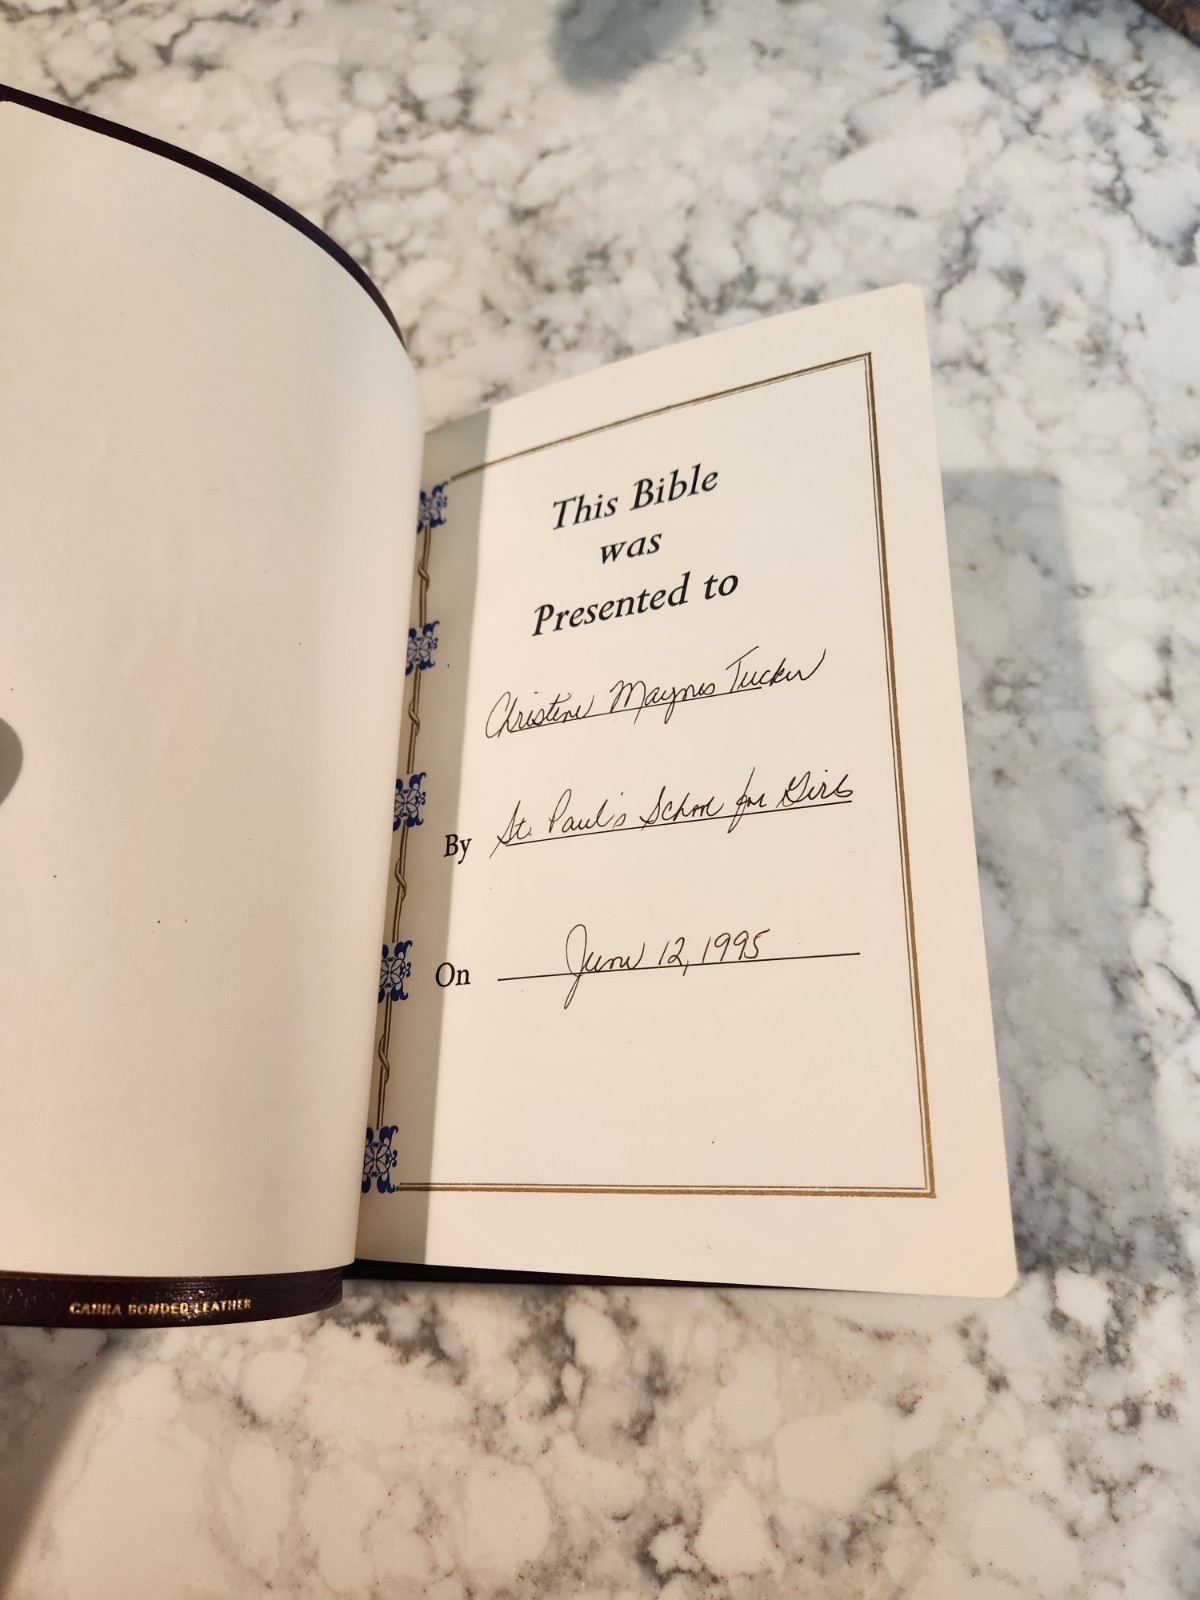 This Bible
was
Presented to
Christine Maynes Tucker
By St. Paul's School for Girls
On June 12, 1995
CABRA BONDED LEATHER